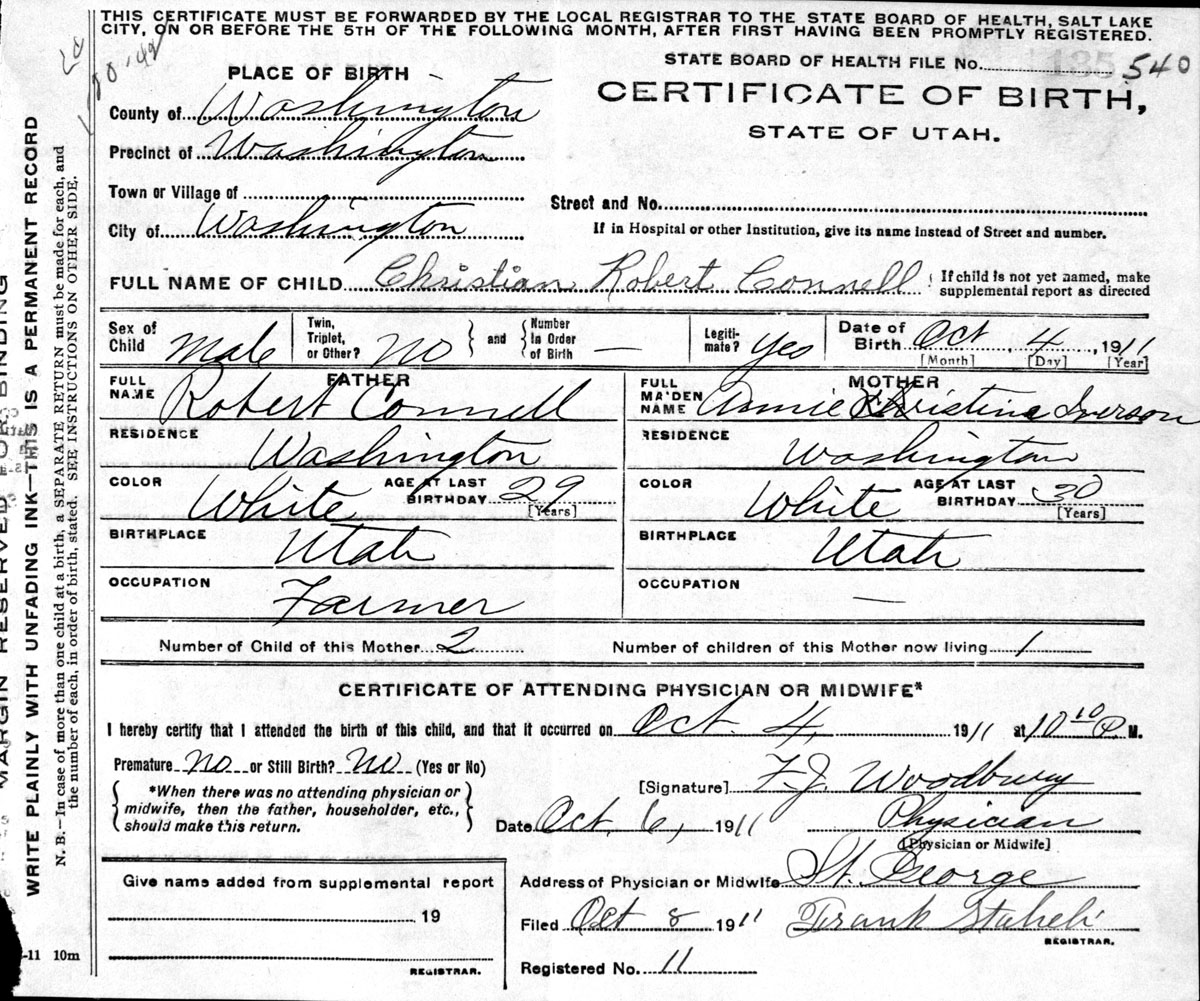 THIS CERTIFICATE MUST BE FORWARDED BY THE LOCAL REGISTRAR TO THE STATE BOARD OF HEALTH, SALT LAKE
CITY, ON OR BEFORE THE 5TH OF THE FOLLOWING MONTH, AFTER FIRST HAVING BEEN PROMPTLY REGISTERED.
STATE BOARD OF HEALTH FILE No. 185 540
CERTIFICATE OF BIRTH,
STATE OF UTAH.
PLACE OF BIRTH
County of Washington
Precinct of Washington
Town or Village of
City of Washington
Street and No.
If in Hospital or other Institution, give its name instead of Street and number.
FULL NAME OF CHILD Christian Robert Connell { If child is not yet named, make
supplemental report as directed
Sex of Child Male
Twin, Triplet, or Other? No } and { Number in Order of Birth —
Legiti- mate? Yes
Date of Birth Oct 4, 1911
[Month] [Day] [Year]
FATHER
FULL NAME Robert Connell
RESIDENCE Washington
COLOR White AGE AT LAST BIRTHDAY 29
[Years]
BIRTHPLACE Utah
OCCUPATION Farmer
MOTHER
FULL MAIDEN NAME Annie Christina Iverson
RESIDENCE Washington
COLOR White AGE AT LAST BIRTHDAY 30
[Years]
BIRTHPLACE Utah
OCCUPATION —
Number of Child of this Mother 2 Number of children of this Mother now living 1
CERTIFICATE OF ATTENDING PHYSICIAN OR MIDWIFE*
I hereby certify that I attended the birth of this child, and that it occurred on Oct. 4, 1911 at 10 10 P. M.
Premature No or Still Birth? No (Yes or No)
*When there was no attending physician or
midwife, then the father, householder, etc.,
should make this return.
[Signature] F.J. Woodbury
Date Oct. 6, 1911 Physician
[Physician or Midwife]
Give name added from supplemental report
19
REGISTRAR.
Address of Physician or Midwife St. George
Filed Oct 8 1911 Frank Staheli
REGISTRAR.
Registered No. 11
-11 10m
MARGIN RESERVED FOR BINDING
WRITE PLAINLY WITH UNFADING INK—THIS IS A PERMANENT RECORD
N. B.—In case of more than one child at a birth, a SEPARATE RETURN must be made for each, and
the number of each, in order of birth, stated. SEE INSTRUCTIONS ON OTHER SIDE.